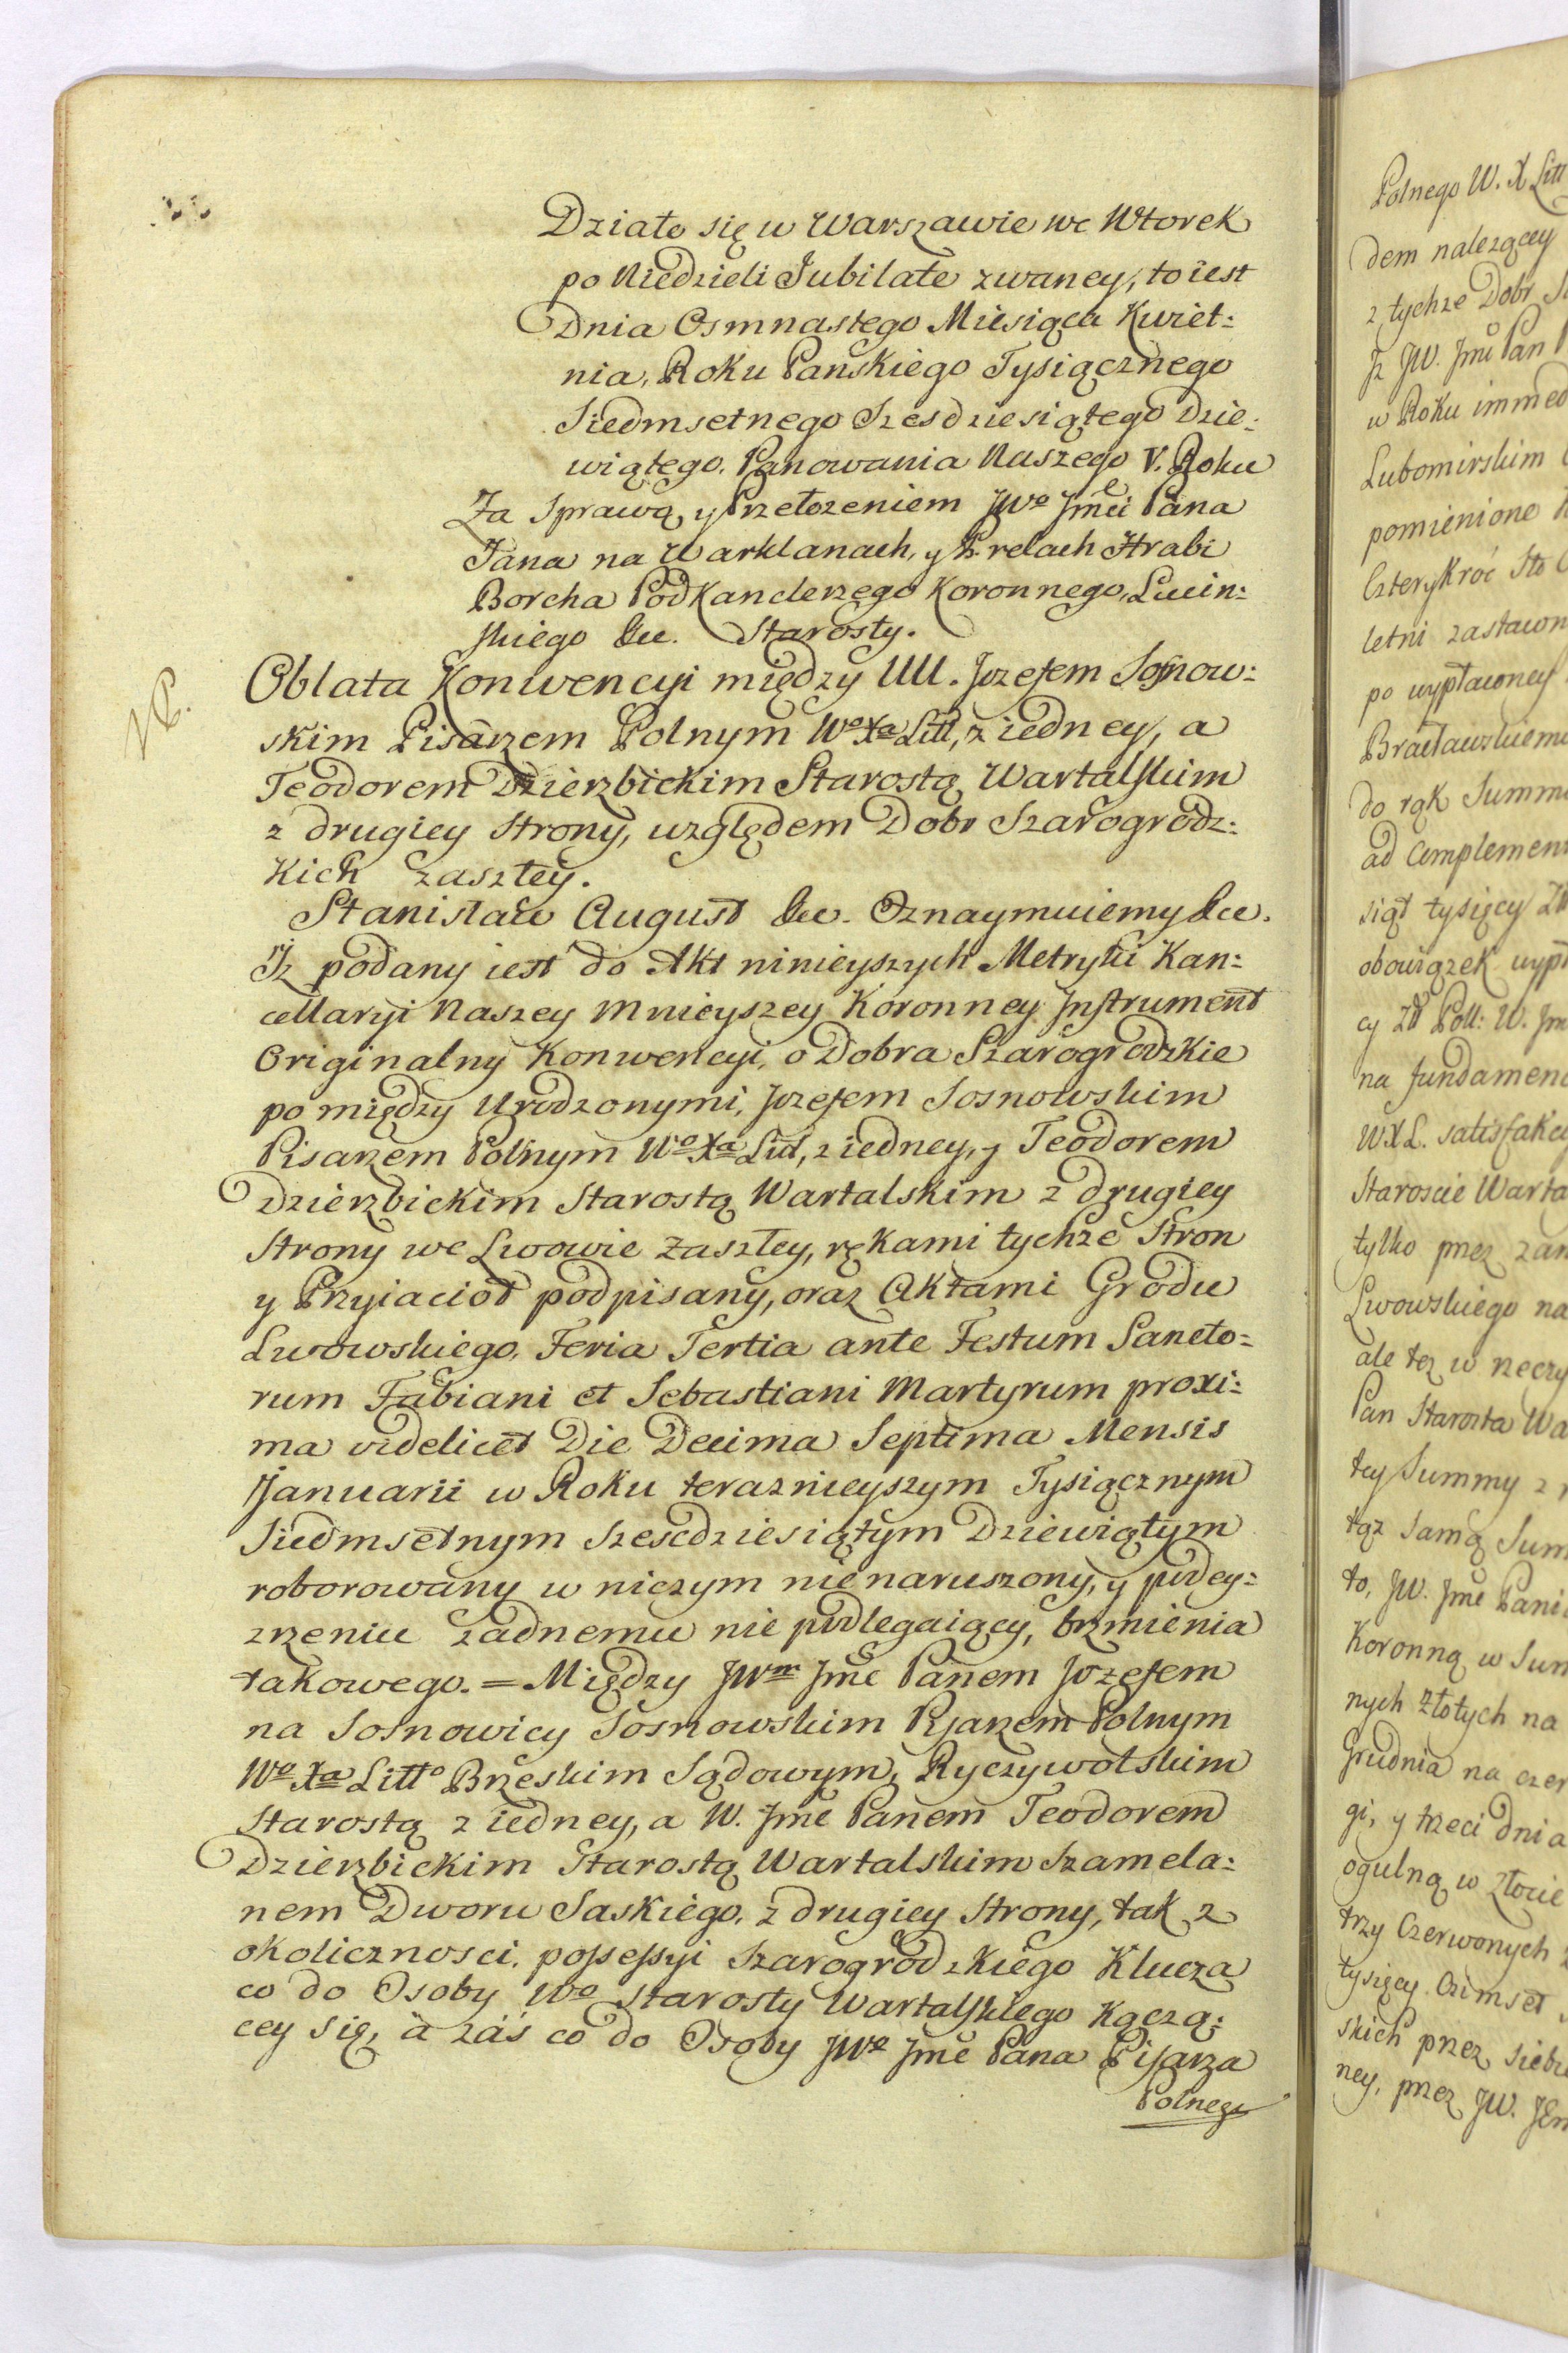 Działo się w Warszawie we Wtorek
po Niedzieli Jubilate zwaney, to iest
Dnia Osmnastego Miesiąca Kwiet:
nia, Roku Pańskiego Tysiącznego
Siedmsetnego Szesdziesiątego Dzie:
wiątego. Panowania Naszego V. Roku
Za Sprawą y Przełożeniem JWo Jmci Pana
Jana na Warklanach, y Prelach Hrabi
Borcha Pod Kanclerzego Koronnego, Lucin:
skiego &c. Starosty.
NB.
Oblata Konwencyi między UU. Jozefem Sosnow:
skim Pisarzem Polnym Wo Xa Litt, z iedney, a
Teodorem Dzierzbickim Starostą Wartalskim
z drugiey Strony, względem Dobr Szarogrodz:
kich zaszłey.
Stanisław August &c. Oznaymuiemy &c.
Iz podany iest do Akt ninieyszych Metryki Kan:
cellaryi Naszey Mnieyszey Koronney Instrument
Originalny Konwencyi, o Dobra Szarogrodzkie
po między Urodzonymi, Jozefem Sosnowskim
Pisarzem Polnym Wo Xa Litt, z iedney, y Teodorem
Dzierzbickim Starostą Wartalskim z drugiey
Strony we Lwowie zaszłey, rękami tychże Stron
y Przyiacioł podpisany, oraz Aktami Grodu
Lwowskiego, Feria Tertia ante Festum Sancto:
rum Fabiani et Sebastiani Martyrum proxi:
ma videlicet Die Decima Septima Mensis
Januarii w Roku teraznieyszym Tysiącznym
Siedmsetnym Szescdziesiątym Dziewiątym
roborowany w niczym nie naruszony, y podey:
zrzeniu zadnemu nie podlegaiący, brzmienia
takowego. = Między JWm Jmć Panem Jozefem
na Sosnowicy Sosnowskim Pisarzem Polnym
Wo Xa Litto Brzeskim Sądowym, Ryczywolskim
Starostą z iedney, a W. Jmć Panem Teodorem
Dzierzbickim Starostą Wartalskim Szamela:
nem Dworu Saskiego, z drugiey Strony, tak z
okoliczności, possessyi Szarogrodzkiego Klucza
co do Osoby Wo Starosty Wartalskiego Kączą:
cey się, a zaś co do Osoby JWo Jmć Pana Pisarza
Polnego
Polnego W. X Litt
dem nalezącey
z tychze Dobr
Iz JW. Jmć Pan
w Roku immed
Lubomirskim
pomienione
Czterykroć Sto
letni zastawn
po wypłaconey
Bracławskiem
do rąk Summ
ad Complemen
siąt tysięcy Zł
obowiązek wypł
cy Zł Poll: W. Jm
na fundamen
W X L. satisfakcy
Staroscie Warta
tylko przez zam
Lwowskiego na
ale też w rzeczy
Pan Starosta Wa
tey Summy z
taż samą Sum
to, JW. Jmć Pani
Koronną w Sum
nych Złotych na
Grudnia na czer
gi, y trzeci dnia
ogulną w Złocie
trzy Czerwonych
tysięcy Osimset
skich przez siebie
ney, przez JW. JEm